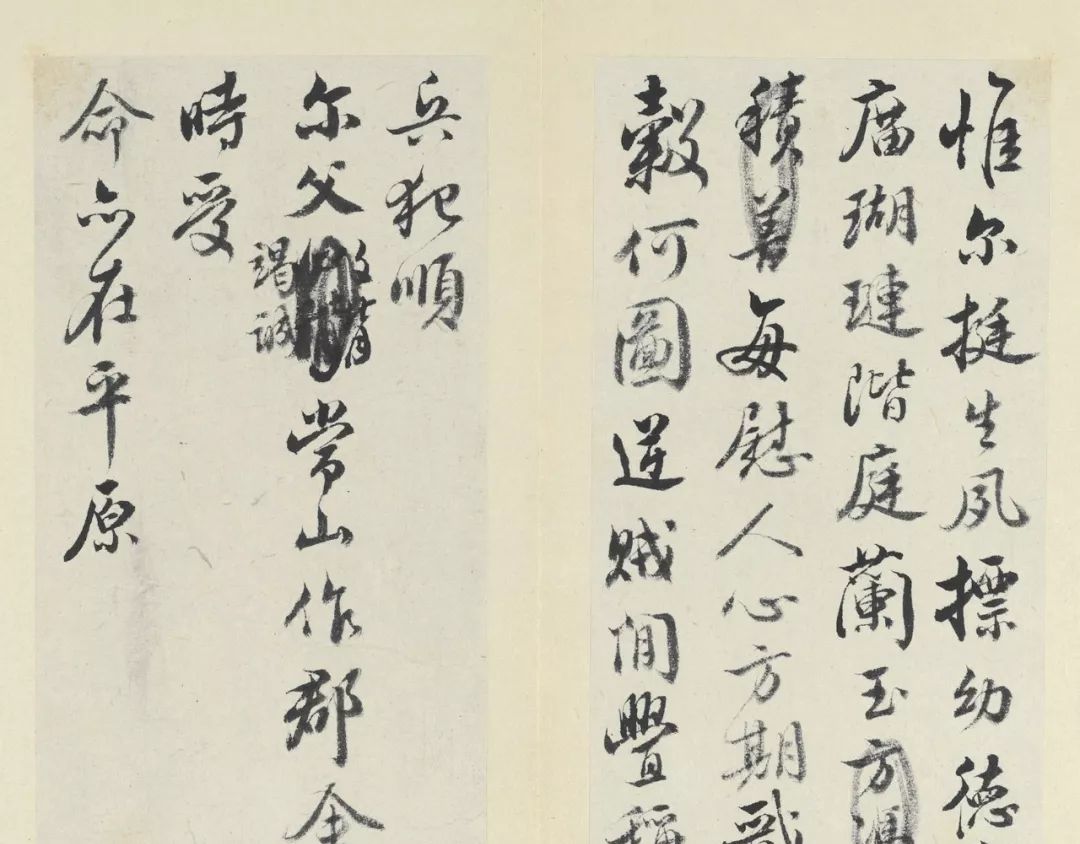 惟尔挺生夙標幼德
庿瑚璉階庭蘭玉方
積善每慰人心方期戩
穀何圖逆賊閒釁稱
兵犯順
尔父
竭誠
常山作郡余
時受
命亦在平原